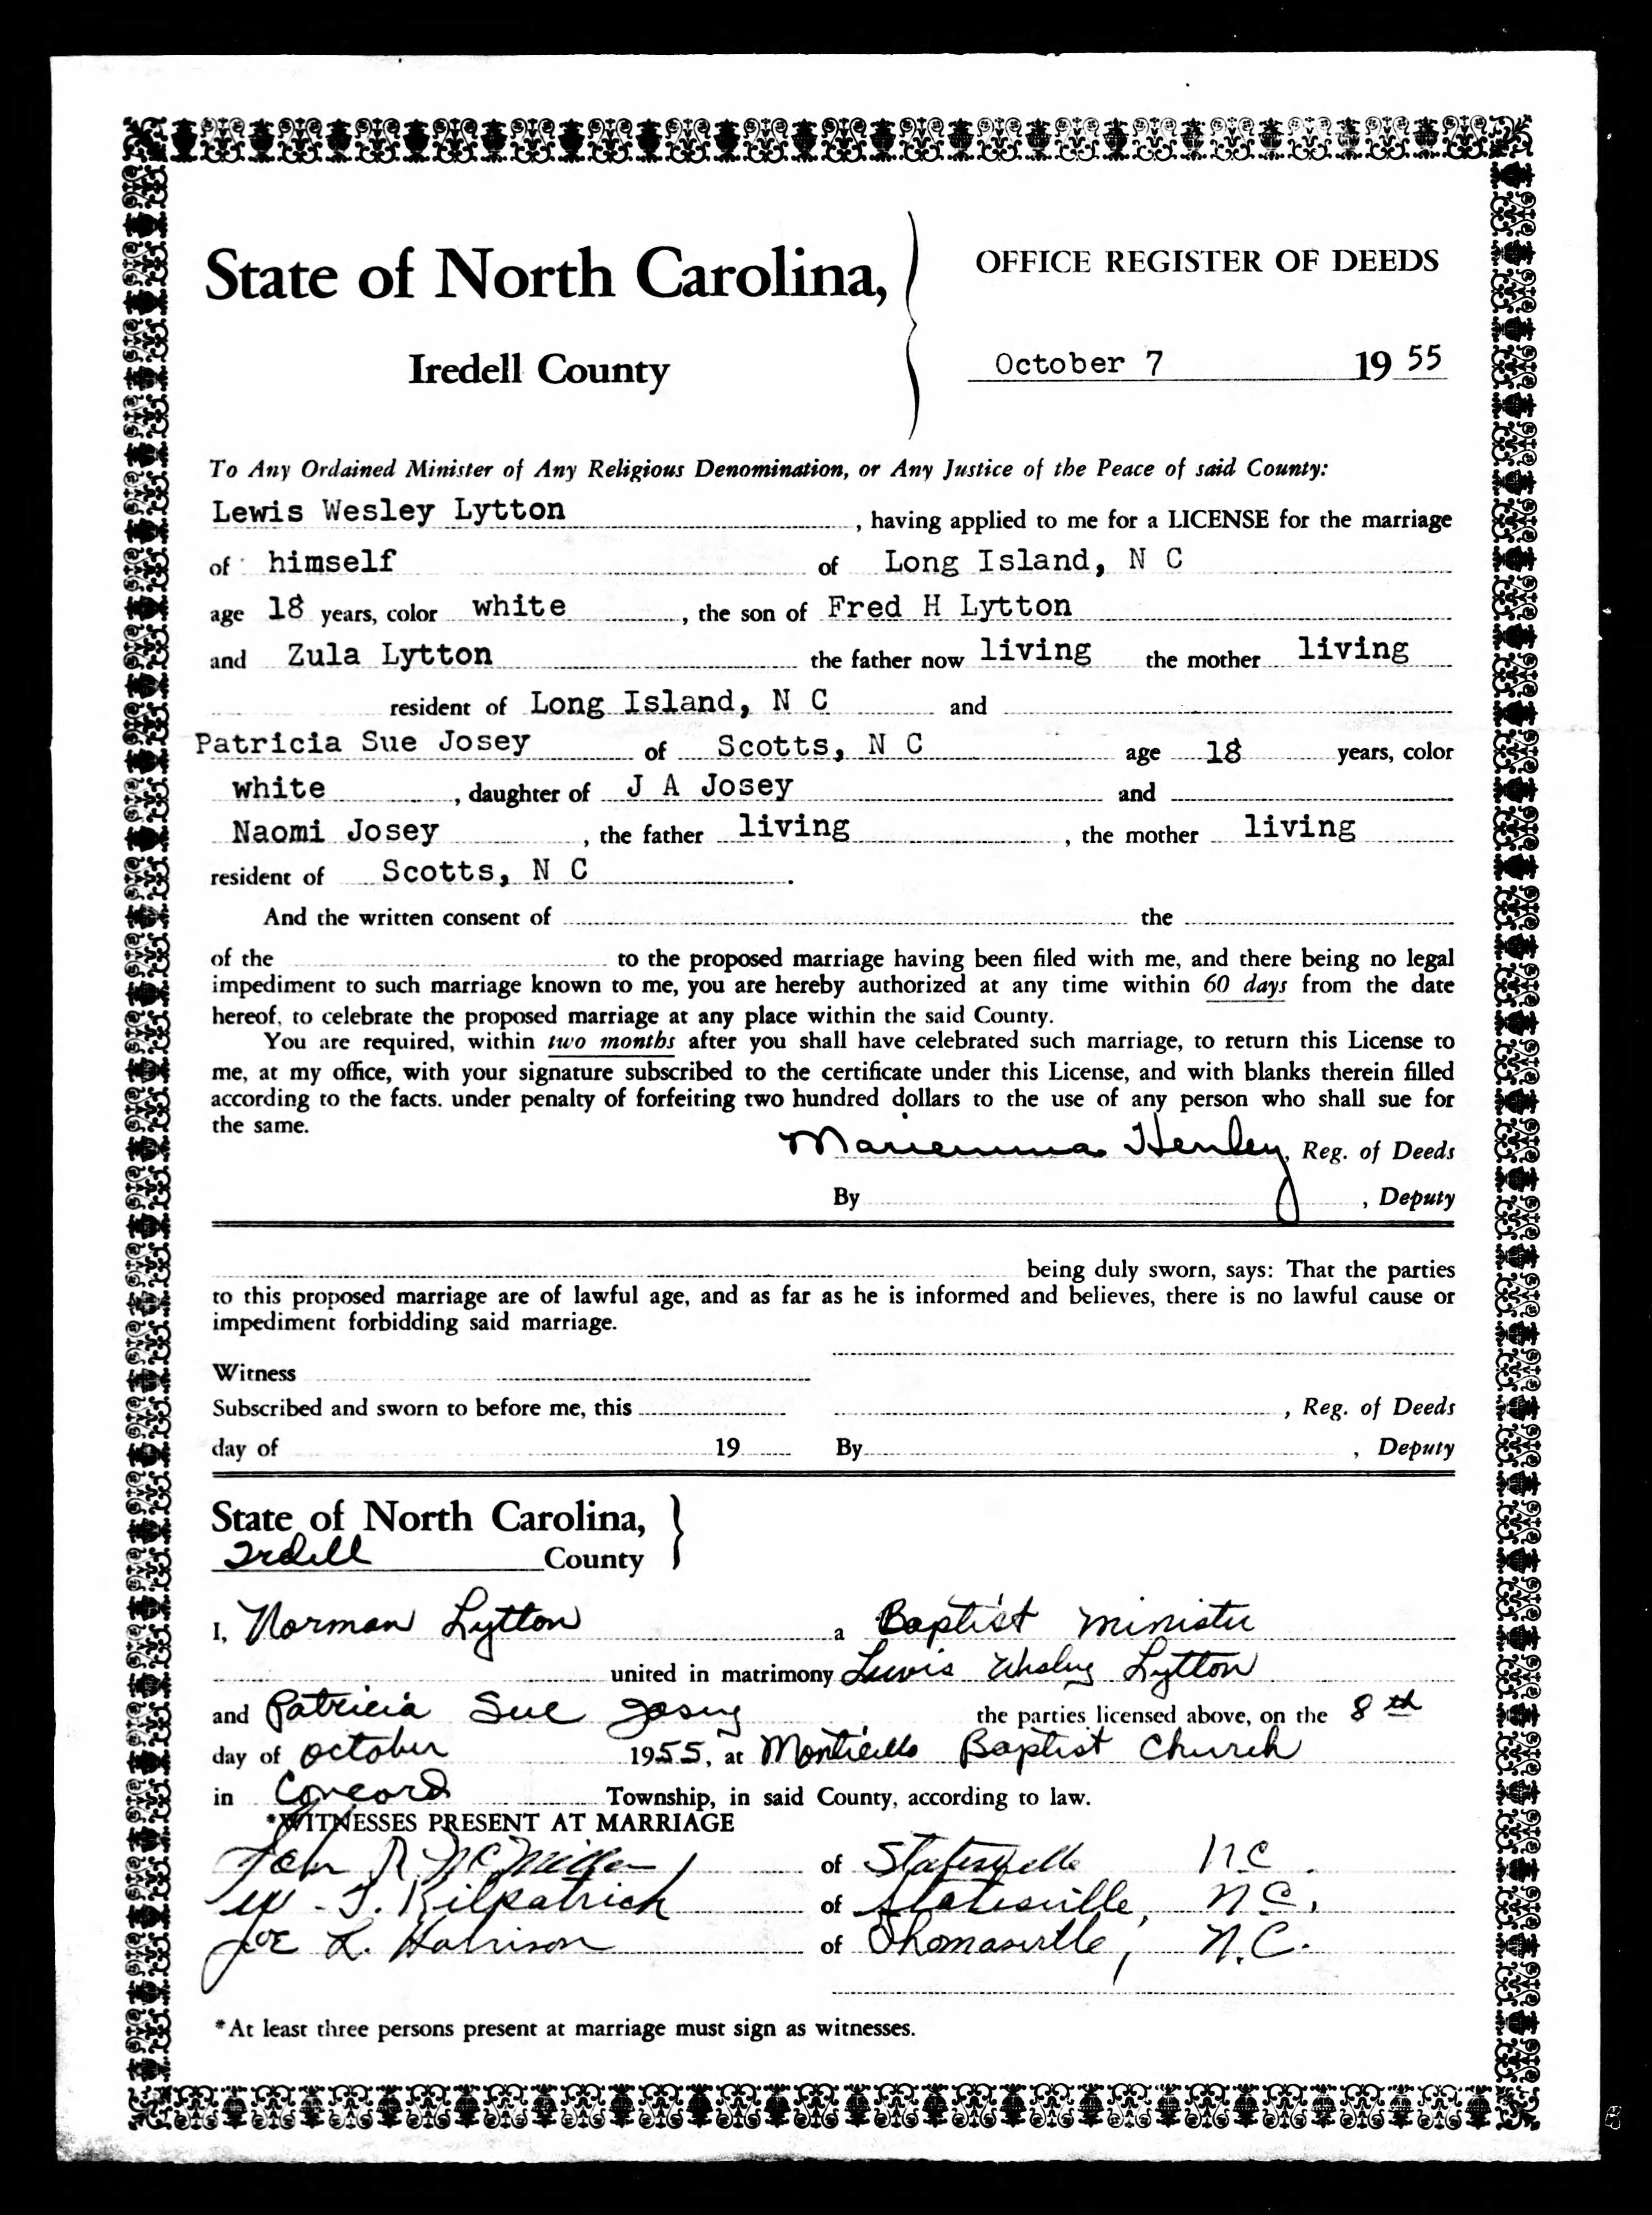 State of North Carolina,
Iredell County
OFFICE REGISTER OF DEEDS
October 7 19 55
To Any Ordained Minister of Any Religious Denomination, or Any Justice of the Peace of said County:
Lewis Wesley Lytton, having applied to me for a LICENSE for the marriage
of himself of Long Island, N C
age 18 years, color white, the son of Fred H Lytton
and Zula Lytton the father now living the mother living
resident of Long Island, N C and
Patricia Sue Josey of Scotts, N C age 18 years, color
white, daughter of J A Josey and
Naomi Josey, the father living, the mother living
resident of Scotts, N C.
And the written consent of the
of the to the proposed marriage having been filed with me, and there being no legal
impediment to such marriage known to me, you are hereby authorized at any time within 60 days from the date
hereof, to celebrate the proposed marriage at any place within the said County.
You are required, within two months after you shall have celebrated such marriage, to return this License to
me, at my office, with your signature subscribed to the certificate under this License, and with blanks therein filled
according to the facts. under penalty of forfeiting two hundred dollars to the use of any person who shall sue for
the same.
Mariemma Henley, Reg. of Deeds
By , Deputy
being duly sworn, says: That the parties
to this proposed marriage are of lawful age, and as far as he is informed and believes, there is no lawful cause or
impediment forbidding said marriage.
Witness
Subscribed and sworn to before me, this , Reg. of Deeds
day of 19 By , Deputy
State of North Carolina,
Iredell County
I, Norman Lytton a Baptist minister
united in matrimony Lewis Wesley Lytton
and Patricia Sue Josey the parties licensed above, on the 8th
day of october 1955, at Monticello Baptist Church
in Concord Township, in said County, according to law.
*WITNESSES PRESENT AT MARRIAGE
John R McMillan of Statesville NC.
W. T. Kilpatrick of Statesville, N.C.
Joe L. of Thomasville, N.C.
*At least three persons present at marriage must sign as witnesses.